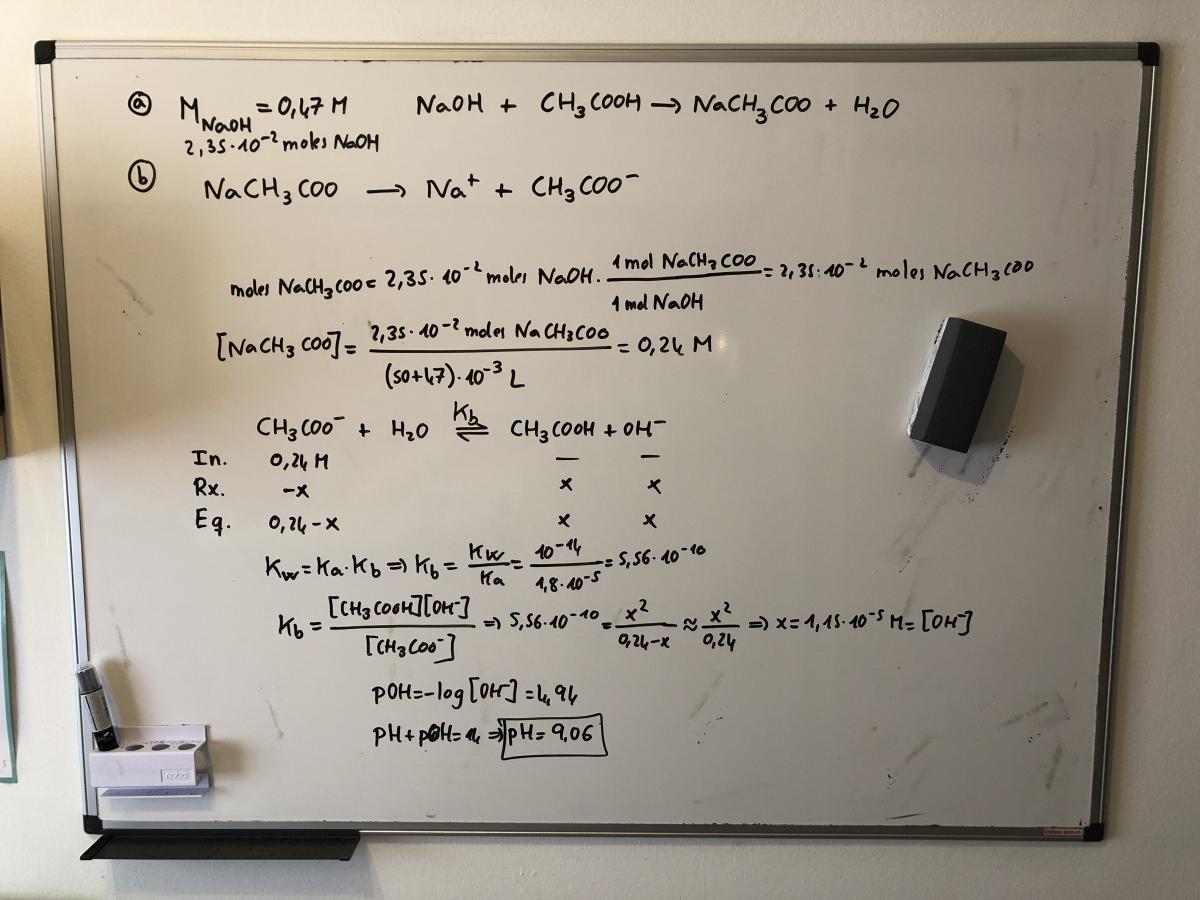 ⓐ M_NaOH = 0,47 M NaOH + CH₃COOH → NaCH₃COO + H₂O
2,35·10⁻² moles NaOH
ⓑ NaCH₃COO → Na⁺ + CH₃COO⁻
moles NaCH₃COO = 2,35·10⁻² moles NaOH · 1 mol NaCH₃COO / 1 mol NaOH = 2,35·10⁻² moles NaCH₃COO
[NaCH₃COO] = 2,35·10⁻² moles NaCH₃COO / (50+47)·10⁻³ L = 0,24 M
CH₃COO⁻ + H₂O ⇌ Kb CH₃COOH + OH⁻
In. 0,24 M — —
Rx. -x x x
Eq. 0,24-x x x
Kw = Ka·Kb ⇒ Kb = Kw/Ka = 10⁻¹⁴/1,8·10⁻⁵ = 5,56·10⁻¹⁰
Kb = [CH₃COOH][OH⁻]/[CH₃COO⁻] ⇒ 5,56·10⁻¹⁰ = x²/0,24-x ≈ x²/0,24 ⇒ x = 1,15·10⁻⁵ M = [OH⁻]
pOH = -log [OH⁻] = 4,94
pH + pOH = 14 ⇒ pH = 9,06
nobo